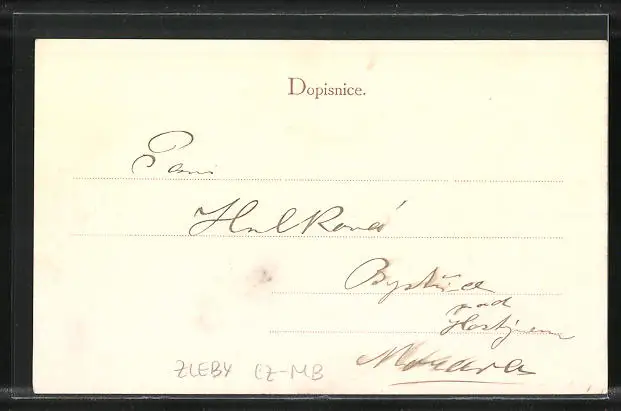 Dopisnice.
Paní
Hulková
Bystřice
pod
Hostýnem
Morava
ZLEBY CZ-MB